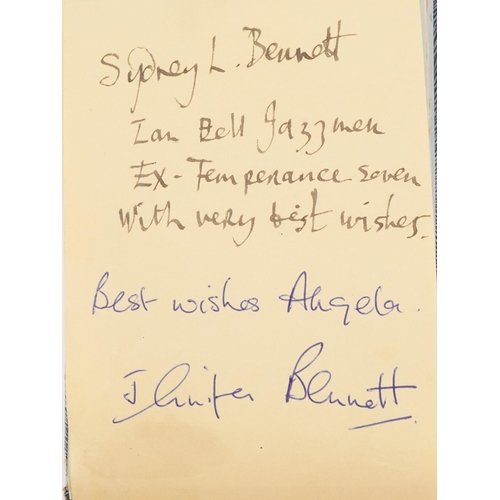 Sydney L. Bennett
Ian Bell Jazzmen
Ex-Temperance Seven
With very best wishes.
Best wishes Angela.
Jennifer Bennett